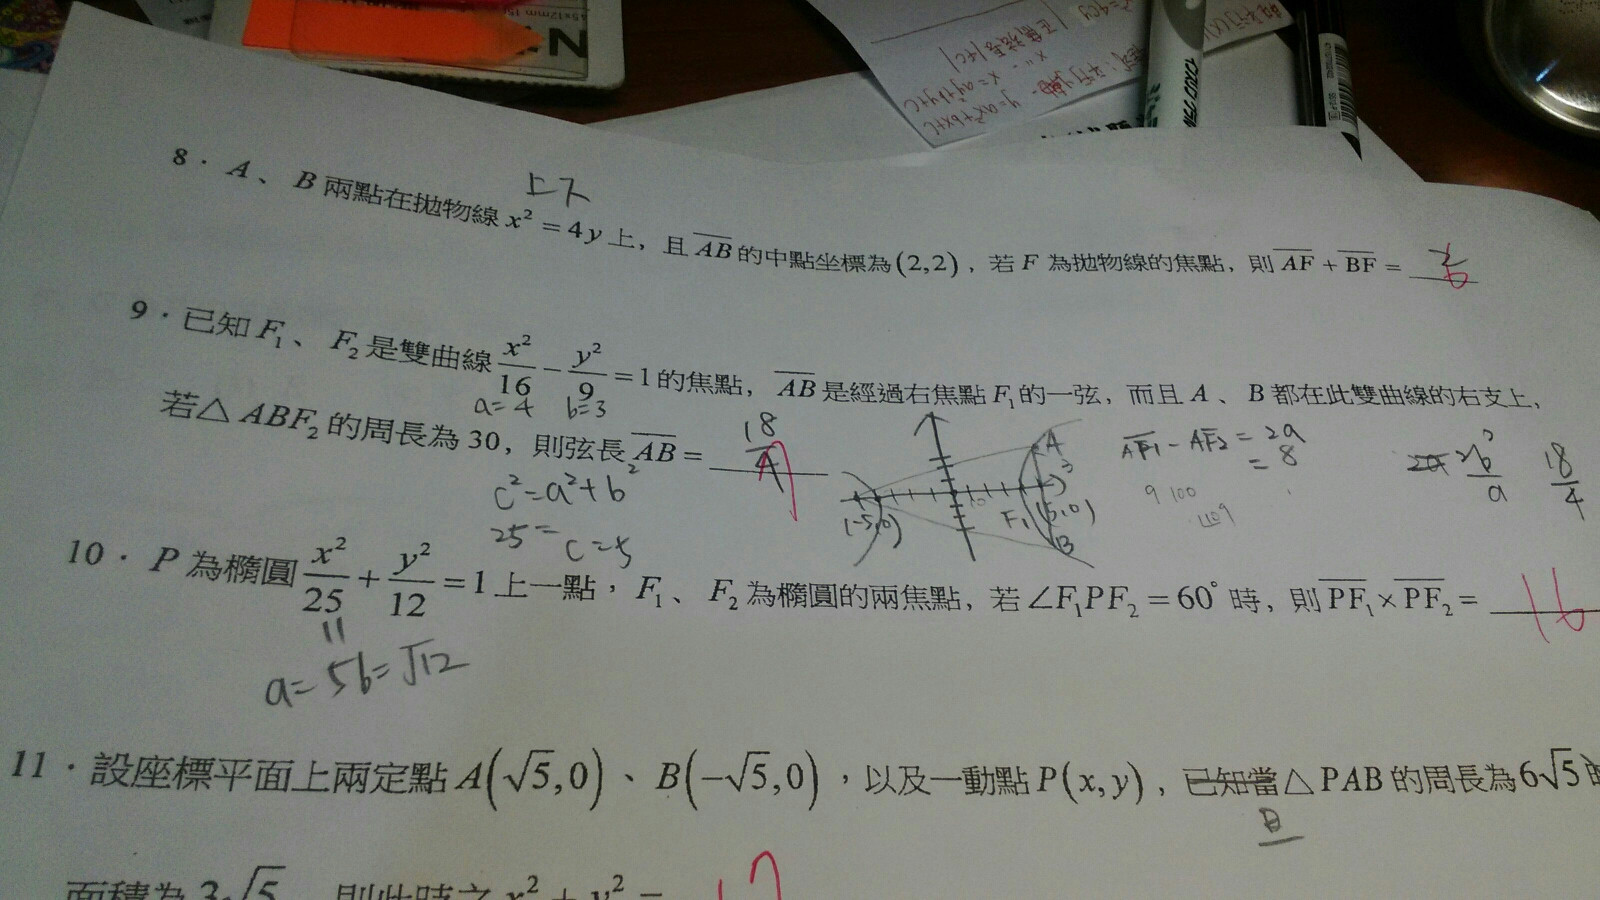 x = ay²+by+c
y=ax²+bx+c
上下
8. A、B兩點在拋物線 x² = 4y 上, 且 AB 的中點坐標為 (2,2), 若 F 為拋物線的焦點, 則 AF + BF = 6
9. 已知 F₁、F₂ 是雙曲線 x²/16 − y²/9 = 1 的焦點, AB 是經過右焦點 F₁ 的一弦, 而且 A、B 都在此雙曲線的右支上,
a=4 b=3
若△ABF₂ 的周長為 30, 則弦長 AB = 18/4 7
c²=a²+b²
25= c=5
A
(-5,0) F₁ (5,0)
B
AF₁ - AF₂ = 2a
= 8
9 100
109
2b²/a 18/4
10. P 為橢圓 x²/25 + y²/12 = 1 上一點, F₁、F₂ 為橢圓的兩焦點, 若 ∠F₁PF₂ = 60° 時, 則 PF₁ × PF₂ = 16
a=5 b=√12
11. 設座標平面上兩定點 A(√5,0)、B(−√5,0), 以及一動點 P(x,y), 已知當△PAB 的周長為 6√5 時
面積為 3√5 則此時之 x² + y² =